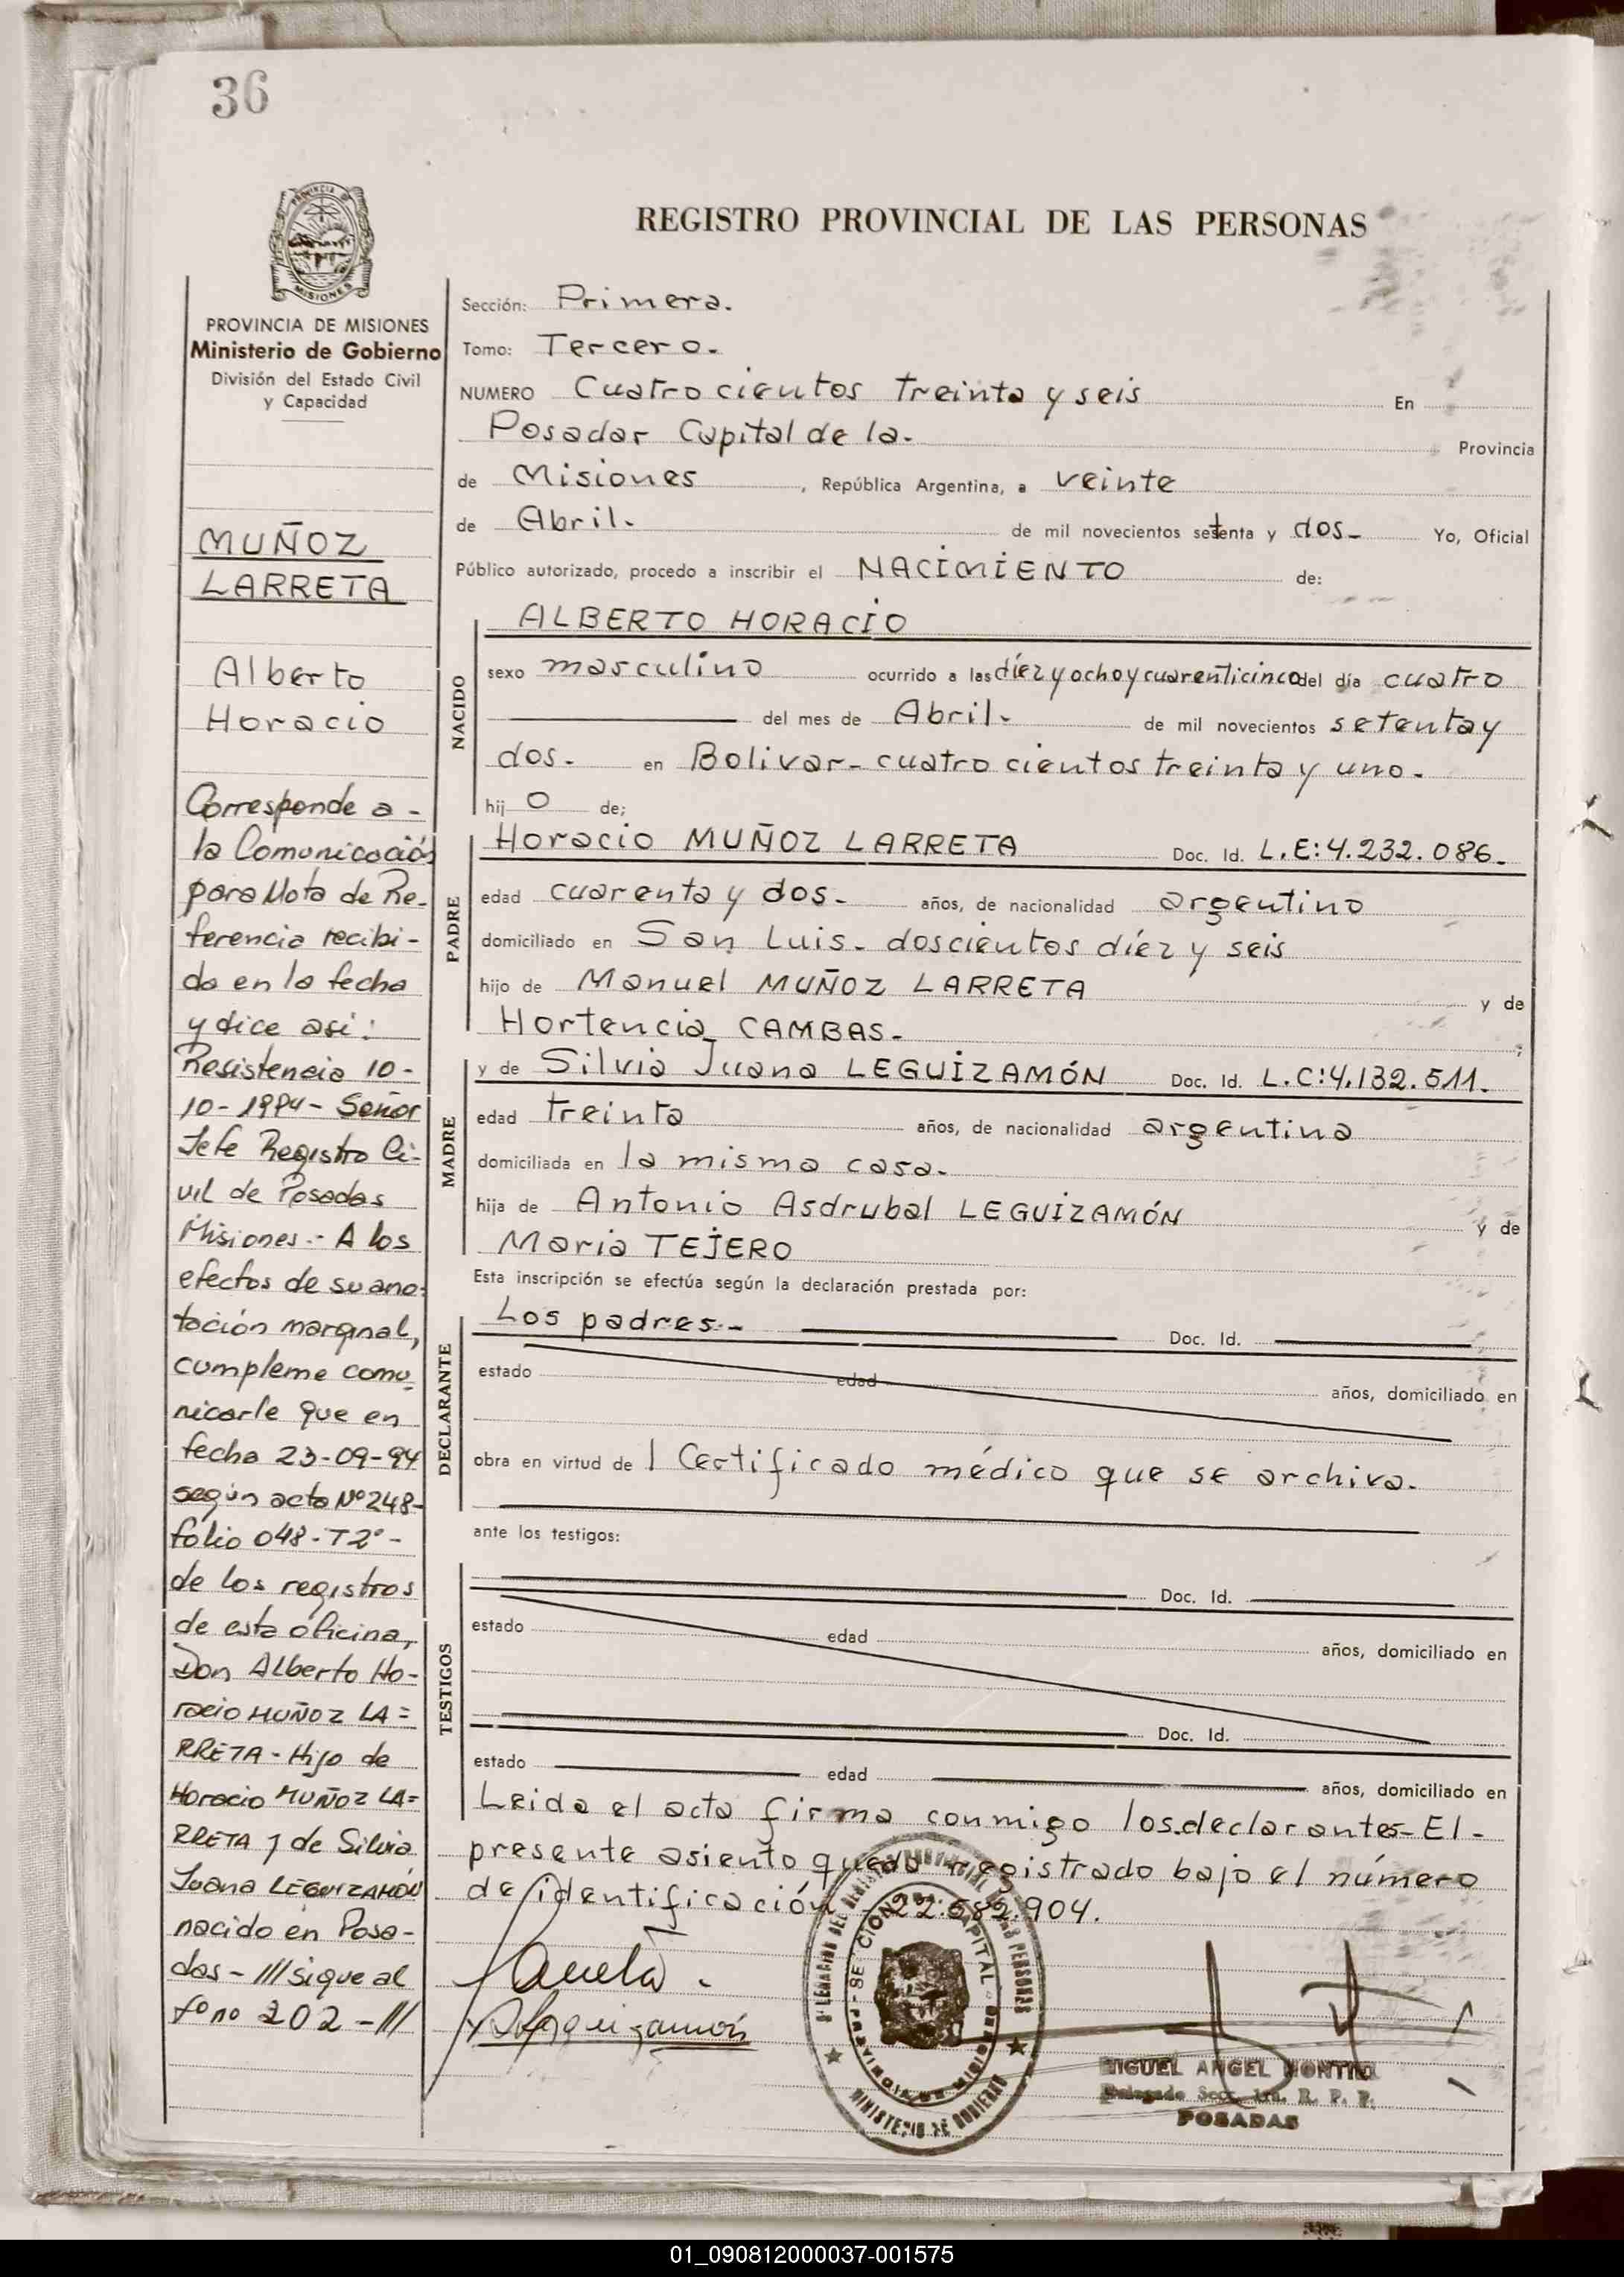 36
REGISTRO PROVINCIAL DE LAS PERSONAS
PROVINCIA DE
MISIONES
PROVINCIA DE MISIONES
Ministerio de Gobierno
División del Estado Civil
y Capacidad
MUÑOZ
LARRETA
Alberto
Horacio
Corresponde a -
la Comunicación
para Nota de Re-
ferencia recibi-
da en la fecha
y dice asi:
Resistencia 10-
10-1994- Señor
Jefe Registro Ci-
vil de Posadas
Misiones.- A los
efectos de su ano-
tación marginal,
cumpleme comu-
nicarle que en
fecha 23-09-94
según acta Nº 248-
folio 048-T2º-
de los registros
de esta oficina,
Don Alberto Ho-
racio MUÑOZ LA=
RRETA - Hijo de
Horacio MUÑOZ LA=
RRETA y de Silvia
Juana LEGUIZAMÓN
nacido en Posa-
das - /// sigue al
fº nº 202 -///
Sección: Primera.
Tomo: Tercero.
NUMERO Cuatrocientos treinta y seis En
Posadas Capital de la. Provincia
de Misiones, República Argentina, a veinte
de Abril. de mil novecientos setenta y dos- Yo, Oficial
Público autorizado, procedo a inscribir el NACIMIENTO de:
ALBERTO HORACIO
NACIDO
sexo masculino ocurrido a las díez y ocho y cuarenticinco del día cuatro
del mes de Abril. de mil novecientos setenta y
dos. en Bolivar- cuatrocientos treinta y uno.
hij o de;
PADRE
Horacio MUÑOZ LARRETA Doc. Id. L.E:4.232.086.
edad cuarenta y dos. años, de nacionalidad argentino
domiciliado en San Luis. doscientos díez y seis
hijo de Manuel MUÑOZ LARRETA y de
Hortencia CAMBAS. ;
MADRE
y de Silvia Juana LEGUIZAMÓN Doc. Id. L.C:4.132.511.
edad treinta años, de nacionalidad argentina
domiciliada en la misma casa.
hija de Antonio Asdrubal LEGUIZAMÓN y de
Maria TEJERO
Esta inscripción se efectúa según la declaración prestada por:
DECLARANTE
Los padres.- Doc. Id.
estado edad años, domiciliado en
obra en virtud de 1 Certificado médico que se archiva.
ante los testigos:
TESTIGOS
Doc. Id.
estado edad años, domiciliado en
Doc. Id.
estado edad años, domiciliado en
Leida el acta firma conmigo los declarantes- El-
presente asiento queda registrado bajo el número
de identificación 22.682.904.
MINISTERIO DE GOBIERNO
MIGUEL ANGEL
Delegado Secc. 1ra. R. P. P.
POSADAS
01_090812000037-001575